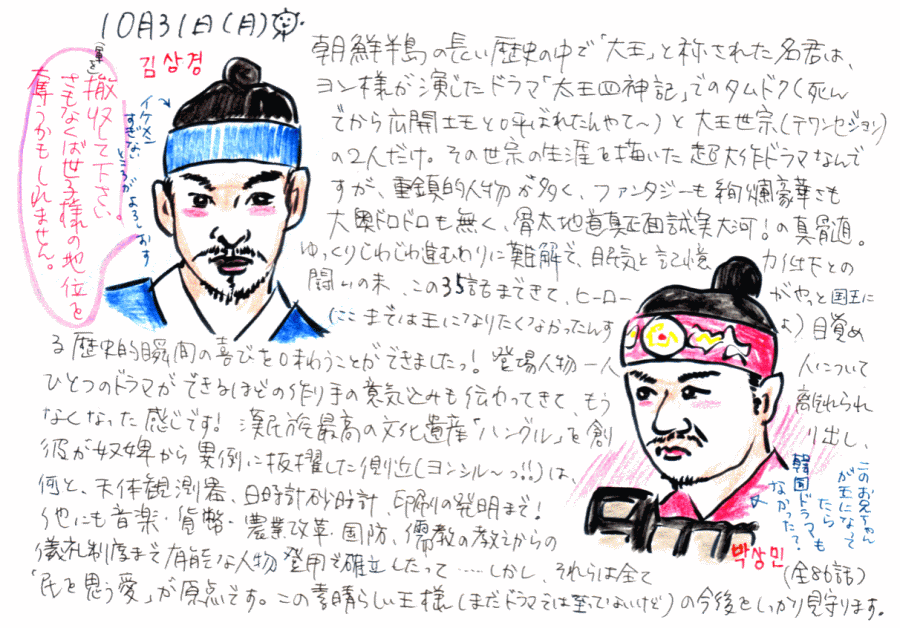 10月31日(月)
김상경
軍を
撤収して下さい。
さもなくば世子様の地位を
奪うかもしれません。
イケメン
すぎない
ところがよろしおます
朝鮮半島の長い歴史の中で「大王」と称された名君は、
ヨン様が演じたドラマ「太王四神記」でのタムドク(死ん
でから広開土王と呼ばれたんやて〜)と大王世宗(テワンセジョン)
の2人だけ。その世宗の生涯を描いた超大作ドラマなんで
すが、重鎮的人物が多く、ファンタジーも絢爛豪華さも
大奥ドロドロも無く、骨太地道真正面誠実大河!の真骨頂。
ゆっくりじわじわ進むわりに難解で、眠気と記憶力低下との
闘いの末、この35話まできて、ヒーローがやっと国王に
(ここまでは王になりたくなかったんすよ)目覚め
る歴史的瞬間の喜びを味わうことができましたっ!登場人物一人一人について
ひとつのドラマができるほどの作り手の意気込みも伝わってきて、もう離れられ
なくなった感じです!漢民族最高の文化遺産「ハングル」を創り出し、
彼が奴婢から異例に抜擢した側近(ヨンシル〜っ!!)は、
何と、天体観測器、日時計砂時計、印刷の発明まで!
他にも音楽・貨幣・農業改革・国防、儒教の教えからの
儀礼制度まで有能な人物登用で確立したって……しかし、それらは全て
「民を思う愛」が原点です。この素晴らしい王様(まだドラマでは至っていないけど)の今後をしっかり見守ります。
このお兄ちゃん
が王になって
たら
韓国ドラマも
なかった?
박상민
(全86話)